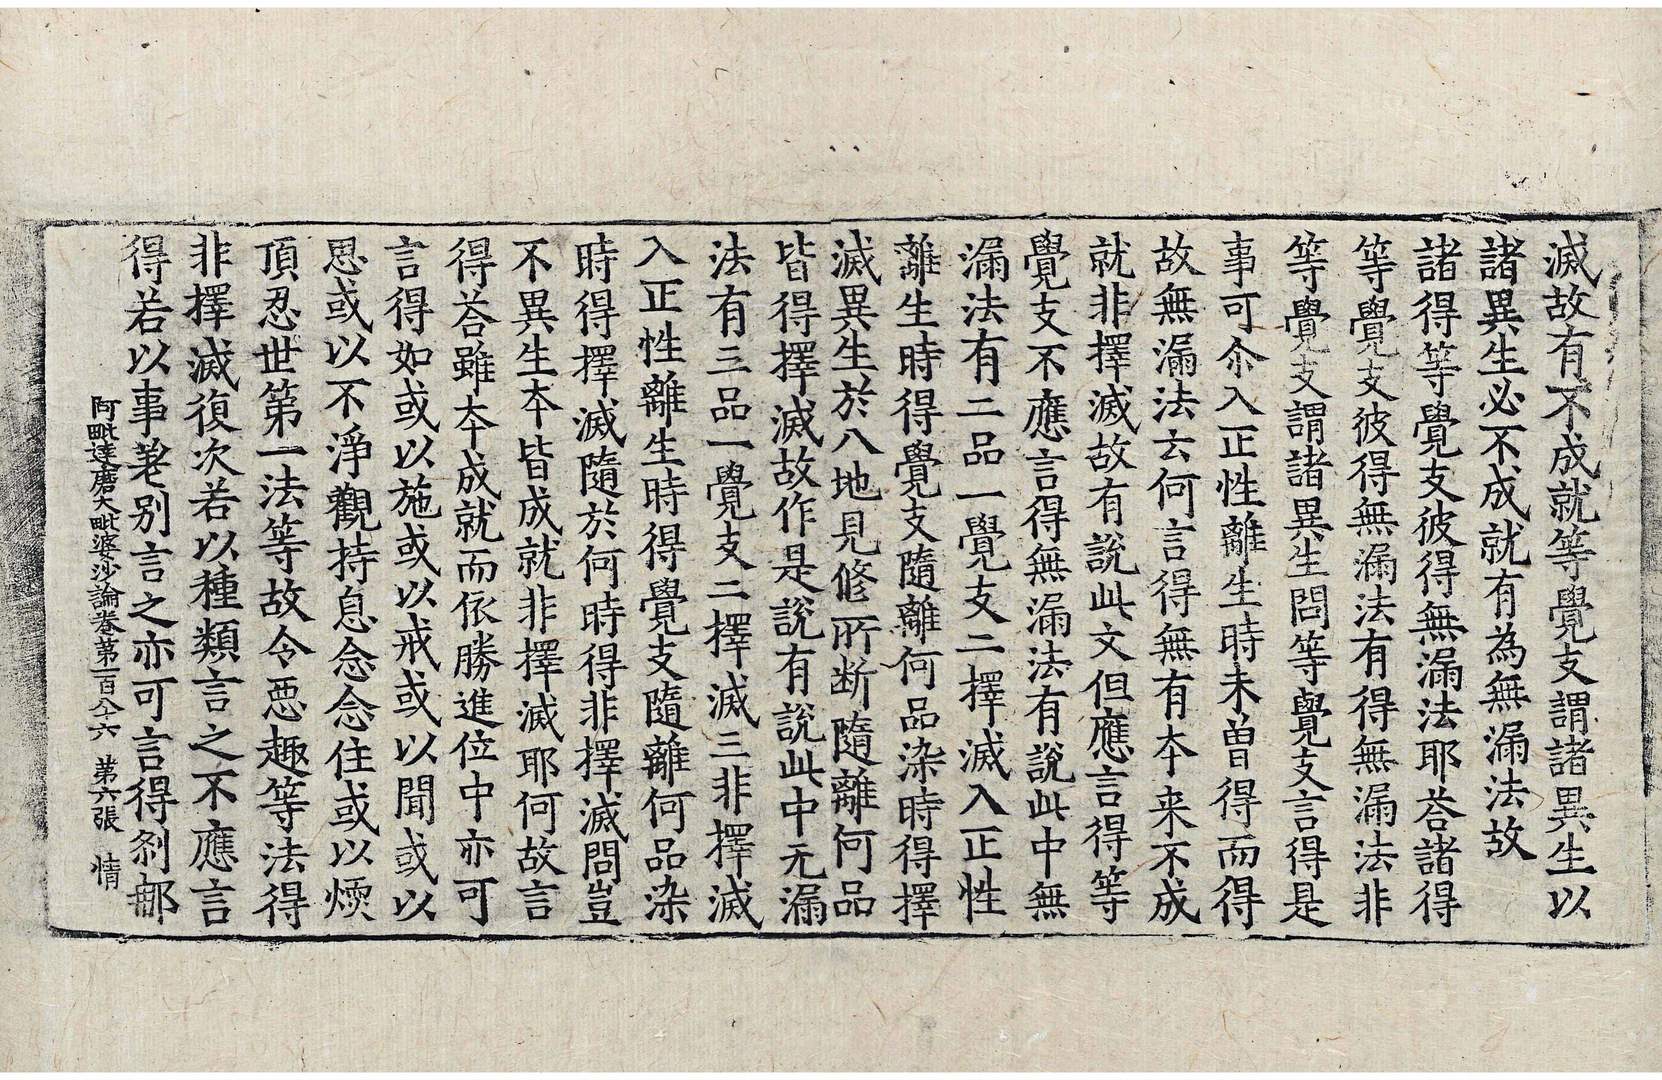 滅故有不成就等覺支謂諸異生以
諸異生必不成就有為無漏法故
諸得等覺支彼得無漏法耶荅諸得
等覺支彼得無漏法有得無漏法非
等覺支謂諸異生問等覺支言得是
事可尒入正性離生時未曾得而得
故無漏法云何言得無有本来不成
就非擇滅故有說此文但應言得等
覺支不應言得無漏法有說此中無
漏法有二品一覺支二擇滅入正性
離生時得覺支隨離何品染時得擇
滅異生於八地見修所断隨離何品
皆得擇滅故作是說有說此中无漏
法有三品一覺支二擇滅三非擇滅
入正性離生時得覺支隨離何品染
時得擇滅隨於何時得非擇滅問豈
不異生本皆成就非擇滅耶何故言
得荅雖本成就而依勝進位中亦可
言得如或以施或以戒或以聞或以
思或以不淨觀持息念念住或以煗
頂忍世第一法等故令惡趣等法得
非擇滅復次若以種類言之不應言
得若以事差别言之亦可言得剎那
阿毗達磨大毗婆沙論卷第一百八十六　第六張　情